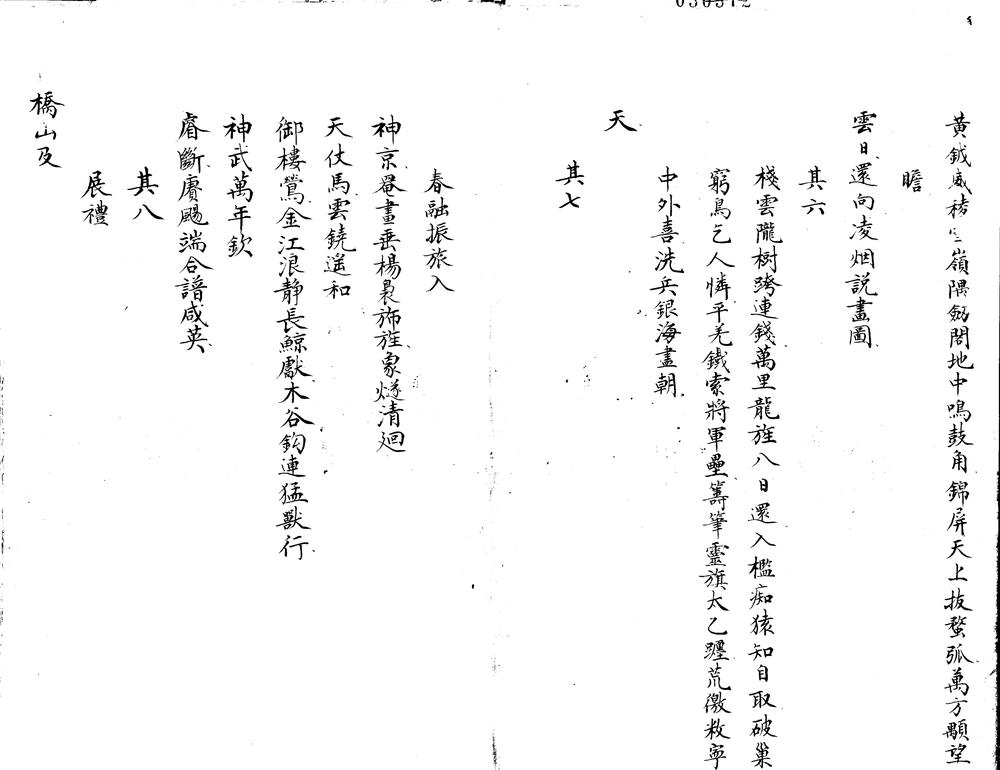 030312
黃鉞威稜嶺隅劒閣地中鳴鼓角錦屏天上拔蝥弧萬方顒望
瞻
雲日還向凌烟説畫圖
其六
棧雲隴樹跨連錢萬里龍旌八日還入檻痴猿知自取破巢
窮鳥乞人憐平羌鐵索將軍壘籌筆靈旗太乙躔荒徼救寧
中外喜洗兵銀海畫朝
天
其七
春融振旅入
神京晷晝垂楊裊斾旌象燧清廻
天仗馬雲鐃遥和
御樓鶯金江浪静長鯨獻木谷鈎連猛獸行
神武萬年欽
睿斷賡颺端合譜咸英
其八
展禮
橋山及